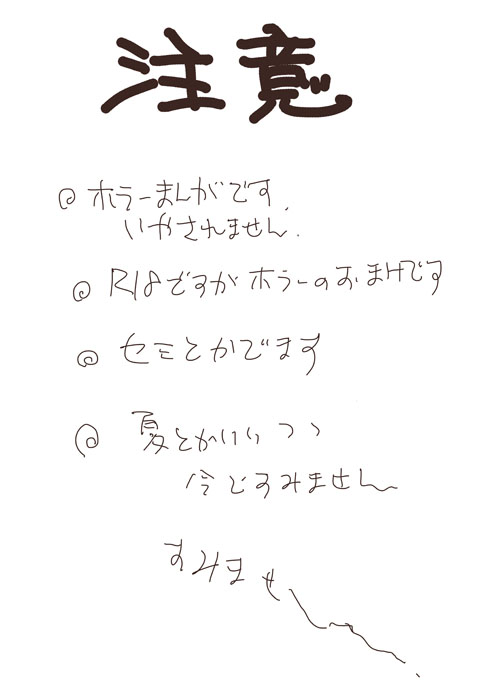 注意
◎ホラーまんがです.
いやされません.
◎R18ですがホラーのおまけです
◎セミとかでます
◎夏とかいいつつ
今ごろすみません
すみません